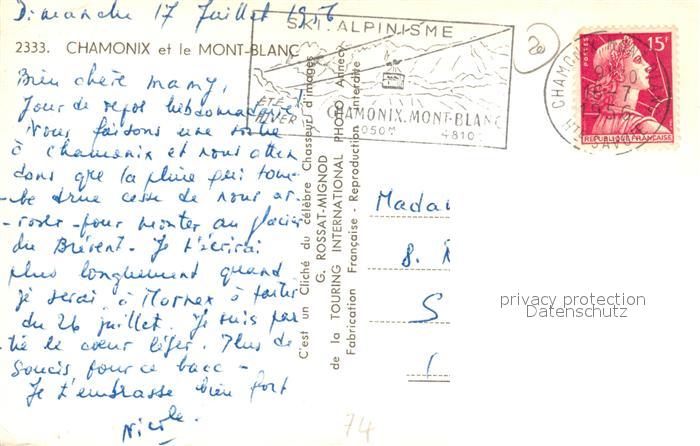 Dimanche 17 Juillet 1956
SKI. ALPINISME
2333. CHAMONIX et le MONT-BLANC
ETE
HIVER
CHAMONIX. MONT-BLANC
1050M 4810
CHAMONIX
1956
HTE SAVOIE
POSTES
15F
REPUBLIQUE FRANÇAISE
Bien chère mamy,
Jour de repos hebdomadaire!
Nous faisons une sortie
à chamonix et nous atten
dons que la pluie qui tom-
-be drue cesse de nous ar-
-roser pour monter au glacier
du Brévent. Je t'écrirai
plus longuement quand
je serai à Mornex à partir
du 26 juillet. Je suis par
-tie le coeur léger. Plus de
soucis pour ce bacc -
Je t'embrasse bien fort
Nicole.
C'est un Cliché du célèbre Chasseur d'images
G. ROSSAT-MIGNOD
de la TOURING INTERNATIONAL PHOTO Annecy
Fabrication Française - Reproduction Interdite
Madam
8.
S
privacy protection
Datenschutz
74